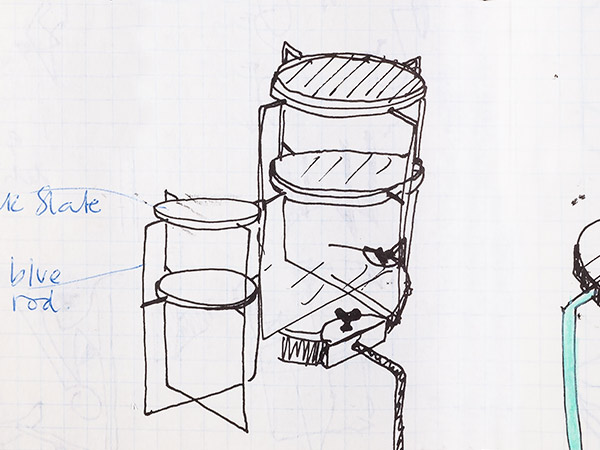 Slate
blue
rod